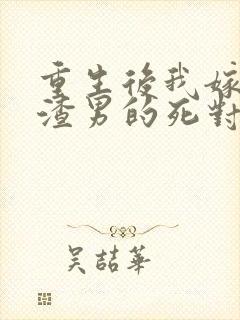 重生後我嫁
渣男的死對
吴喆華